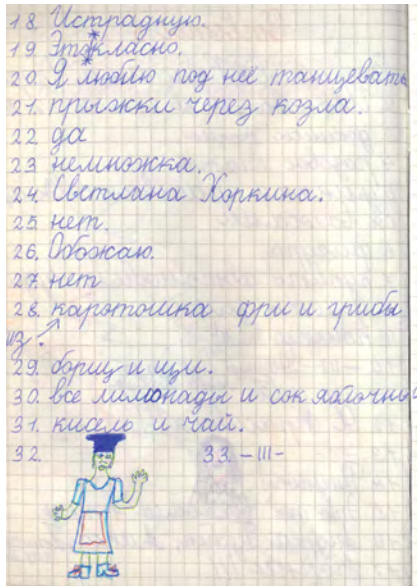 18. Истрадную.
19. Это класно.
20. Я люблю под неё танцевать
21. прыжки через козла.
22 да
23 немножка.
24. Светлана Хоркина.
25. нет.
26. Обожаю.
27. нет
28. каротошка фри и грибы
из
29. борщ и щи.
30. все лимонады и сок яблочный
31. кисель и чай.
32. 33. -|||-